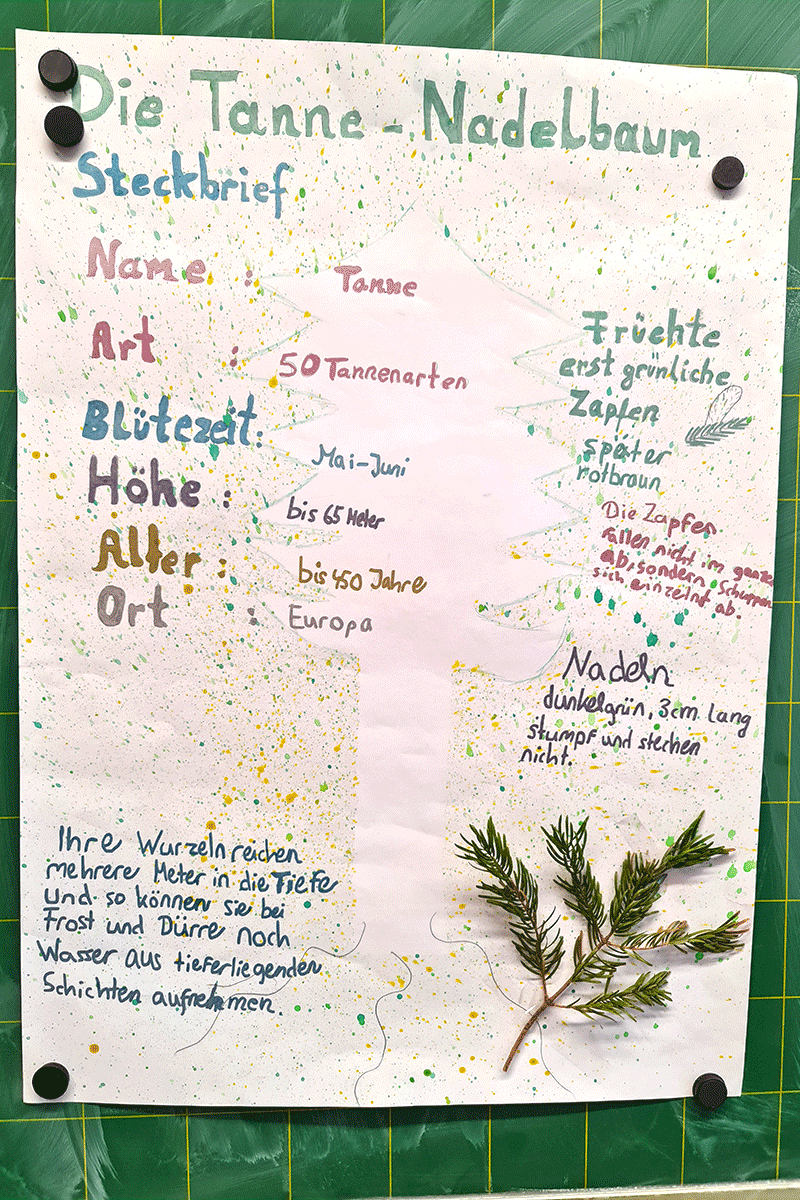 Die Tanne - Nadelbaum
Steckbrief
Name : Tanne
Art : 50 Tannenarten
Blütezeit: Mai-Juni
Höhe : bis 65 Meter
Alter : bis 450 Jahre
Ort : Europa
Früchte
erst grünliche
Zapfen
später
rotbraun
Die Zapfen
fallen nicht im ganzen
ab, sondern Schuppen
sich einzelnt ab.
Nadeln
dunkelgrün, 3cm lang
stumpf und stechen
nicht.
Ihre Wurzeln reichen
mehrere Meter in die Tiefe
und so können sie bei
Frost und Dürre noch
Wasser aus tieferliegenden
Schichten aufnehmen.